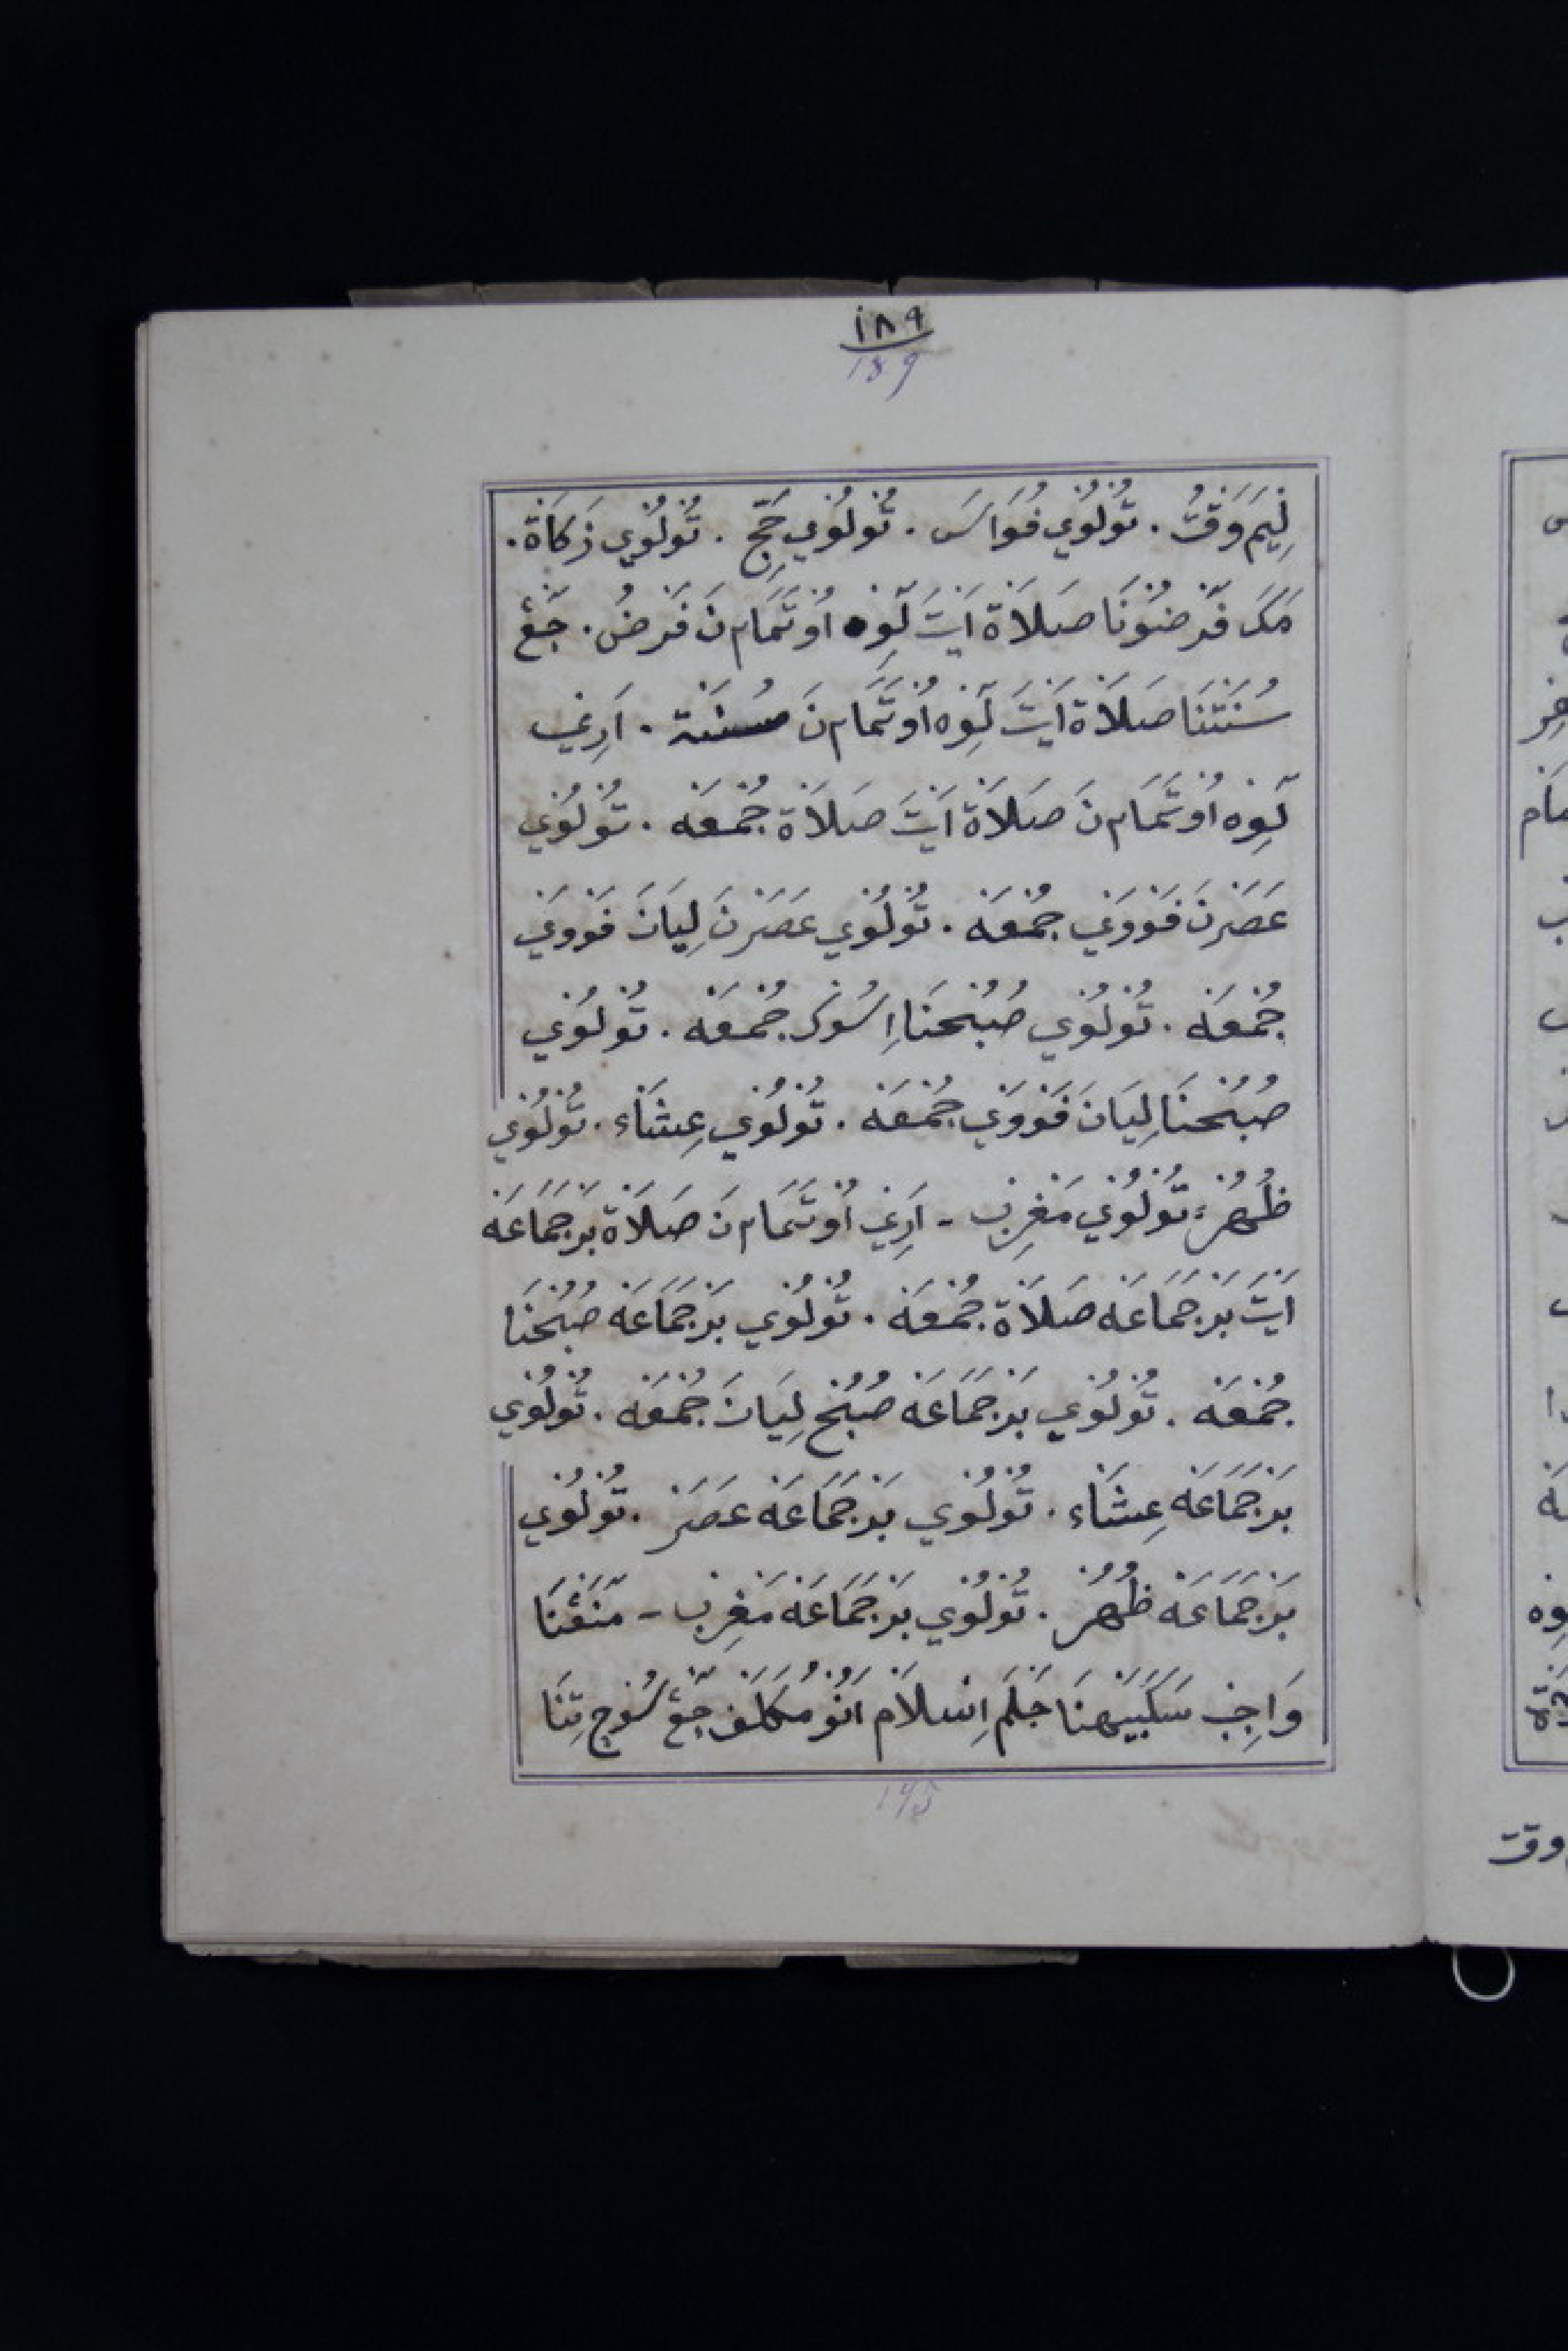 ١٨٩
189
لِيمَ وَقْتُ . تُوْلُوْيِ فُوَاسَ . تُوْلُوْيِ حَجِّ . تُوْلُوْيِ زَكَاةْ .
مَكَ فَرْضُوْنَا صَلَاةْ اَيْتَ لَبِوْه اُوْتَمَام نَ فَرْضُ . جَڠ
سُنَتْنَا صَلَاةْ اَيْتَ لَبِوْه اُوْتَمَام نَ سُنَة . اَرِيْ
لَبِوْه اُوْتَمَام نَ صَلَاةْ اَيْتَ صَلَاةْ جُمْعَهْ . تُوْلُوْيِ
عَصَرْنَ فَوْوَيْ جُمْعَهْ . تُوْلُوْيِ عَصَرْنَ لِيَانَ فَوْوَيْ
جُمْعَهْ . تُوْلُوْيِ صُبُحْنَا اِسُوْكَ جُمْعَهْ . تُوْلُوْيِ
صُبُحْنَا لِيَانَ فَوْوَيْ جُمْعَهْ . تُوْلُوْيِ عِشَاءْ . تُوْلُوْيِ
ظُهُرْ . تُوْلُوْيِ مَغْرِبْ - اَرِيْ اُوْتَمَام نَ صَلَاةْ بَرْجَمَاعَهْ
اَيْتَ بَرْجَمَاعَهْ صَلَاةْ جُمْعَهْ . تُوْلُوْيِ بَرْجَمَاعَهْ صُبُحْنَا
جُمْعَهْ . تُوْلُوْيِ بَرْجَمَاعَهْ صُبُحْ لِيَانَ جُمْعَهْ . تُوْلُوْيِ
بَرْجَمَاعَهْ عِشَاءْ . تُوْلُوْيِ بَرْجَمَاعَهْ عَصَرْ . تُوْلُوْيِ
بَرْجَمَاعَهْ ظُهُرْ . تُوْلُوْيِ بَرْجَمَاعَهْ مَغْرِبْ - مَنَڠْنَا
وَاجِبْ سَكَبَيْهْنَا جَلَمَ اِسْلَامْ اَنُوْ مُكَلَفْ جَڠ سُوْچِ تِنَا